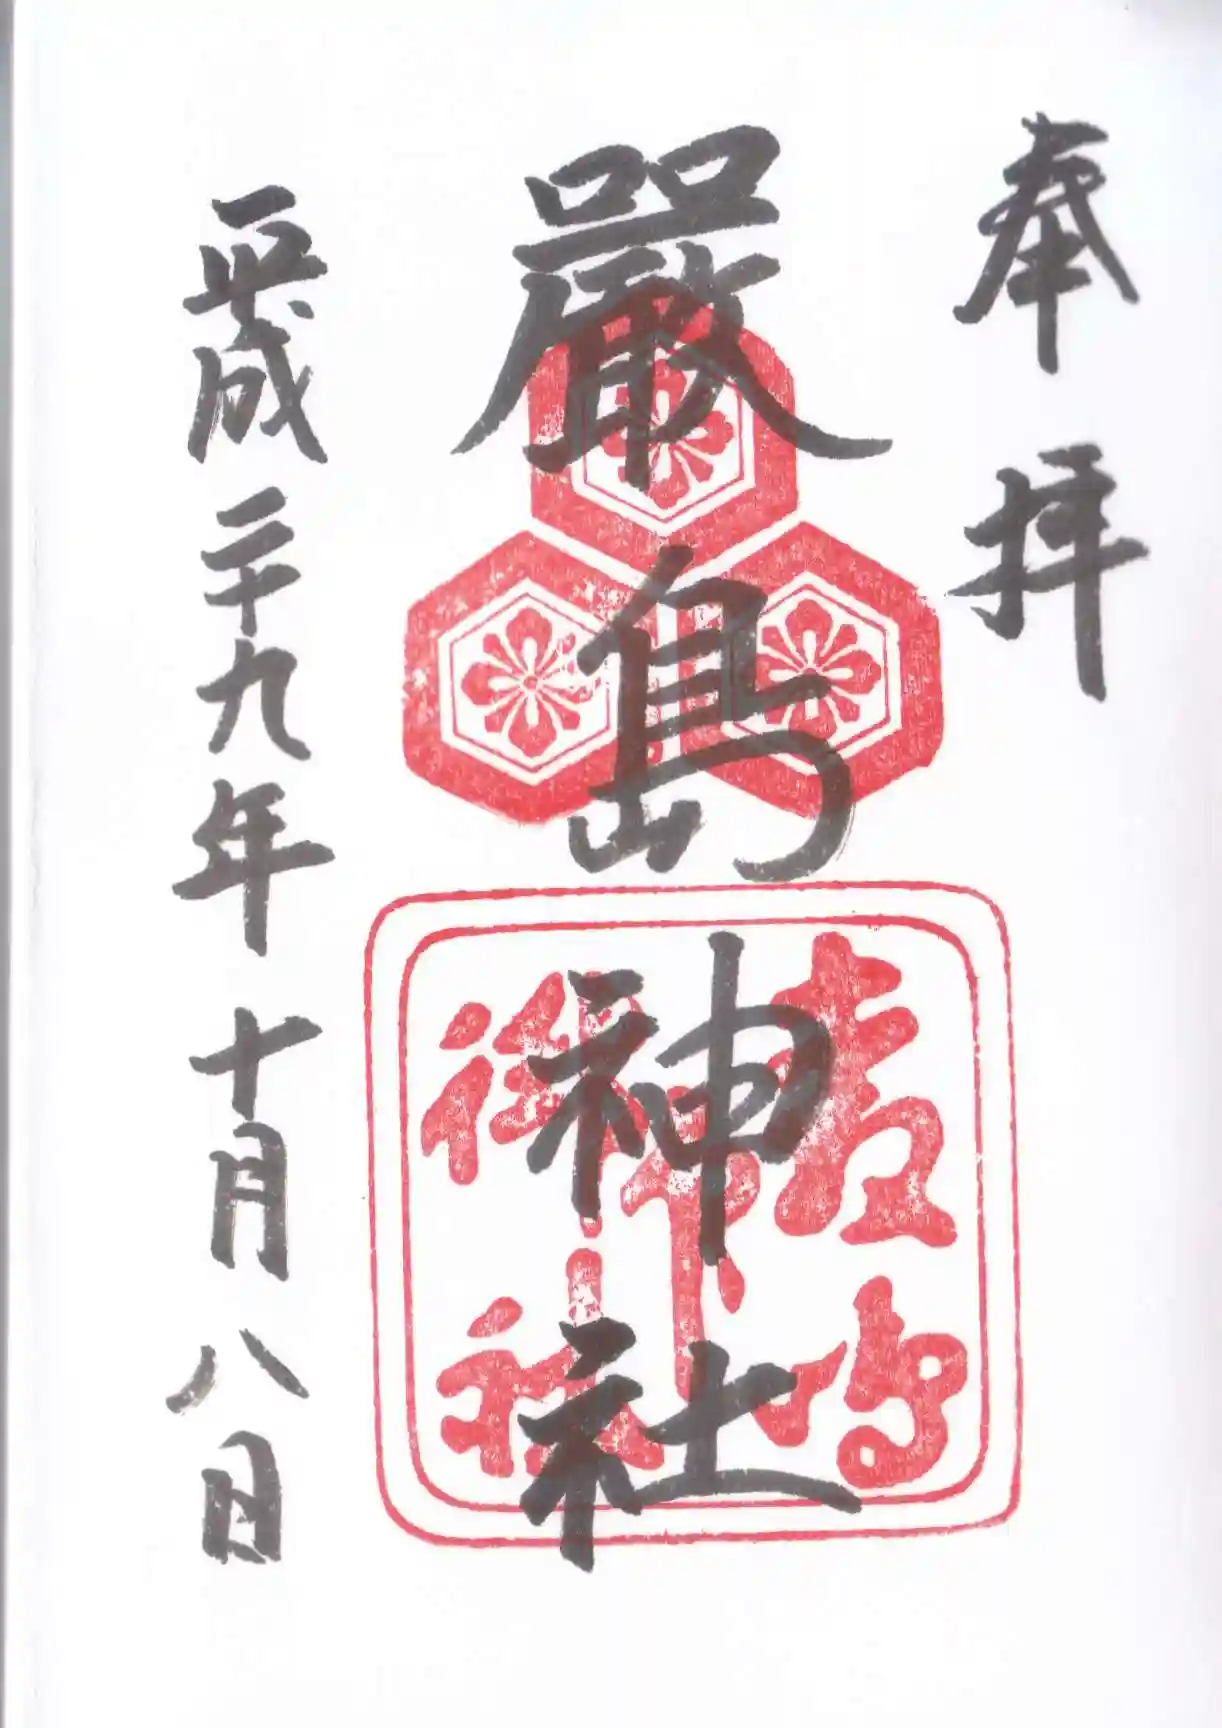 奉拝
嚴島神社
平成二十九年十月八日